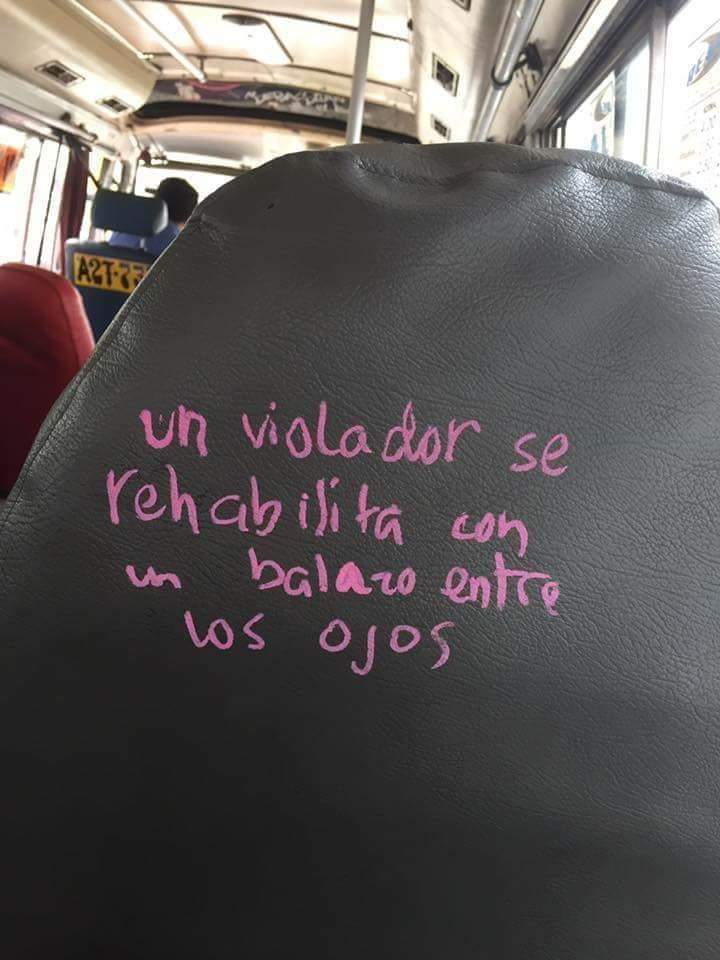 A2T-73
un violador se
rehabilita con
un balazo entre
los ojos